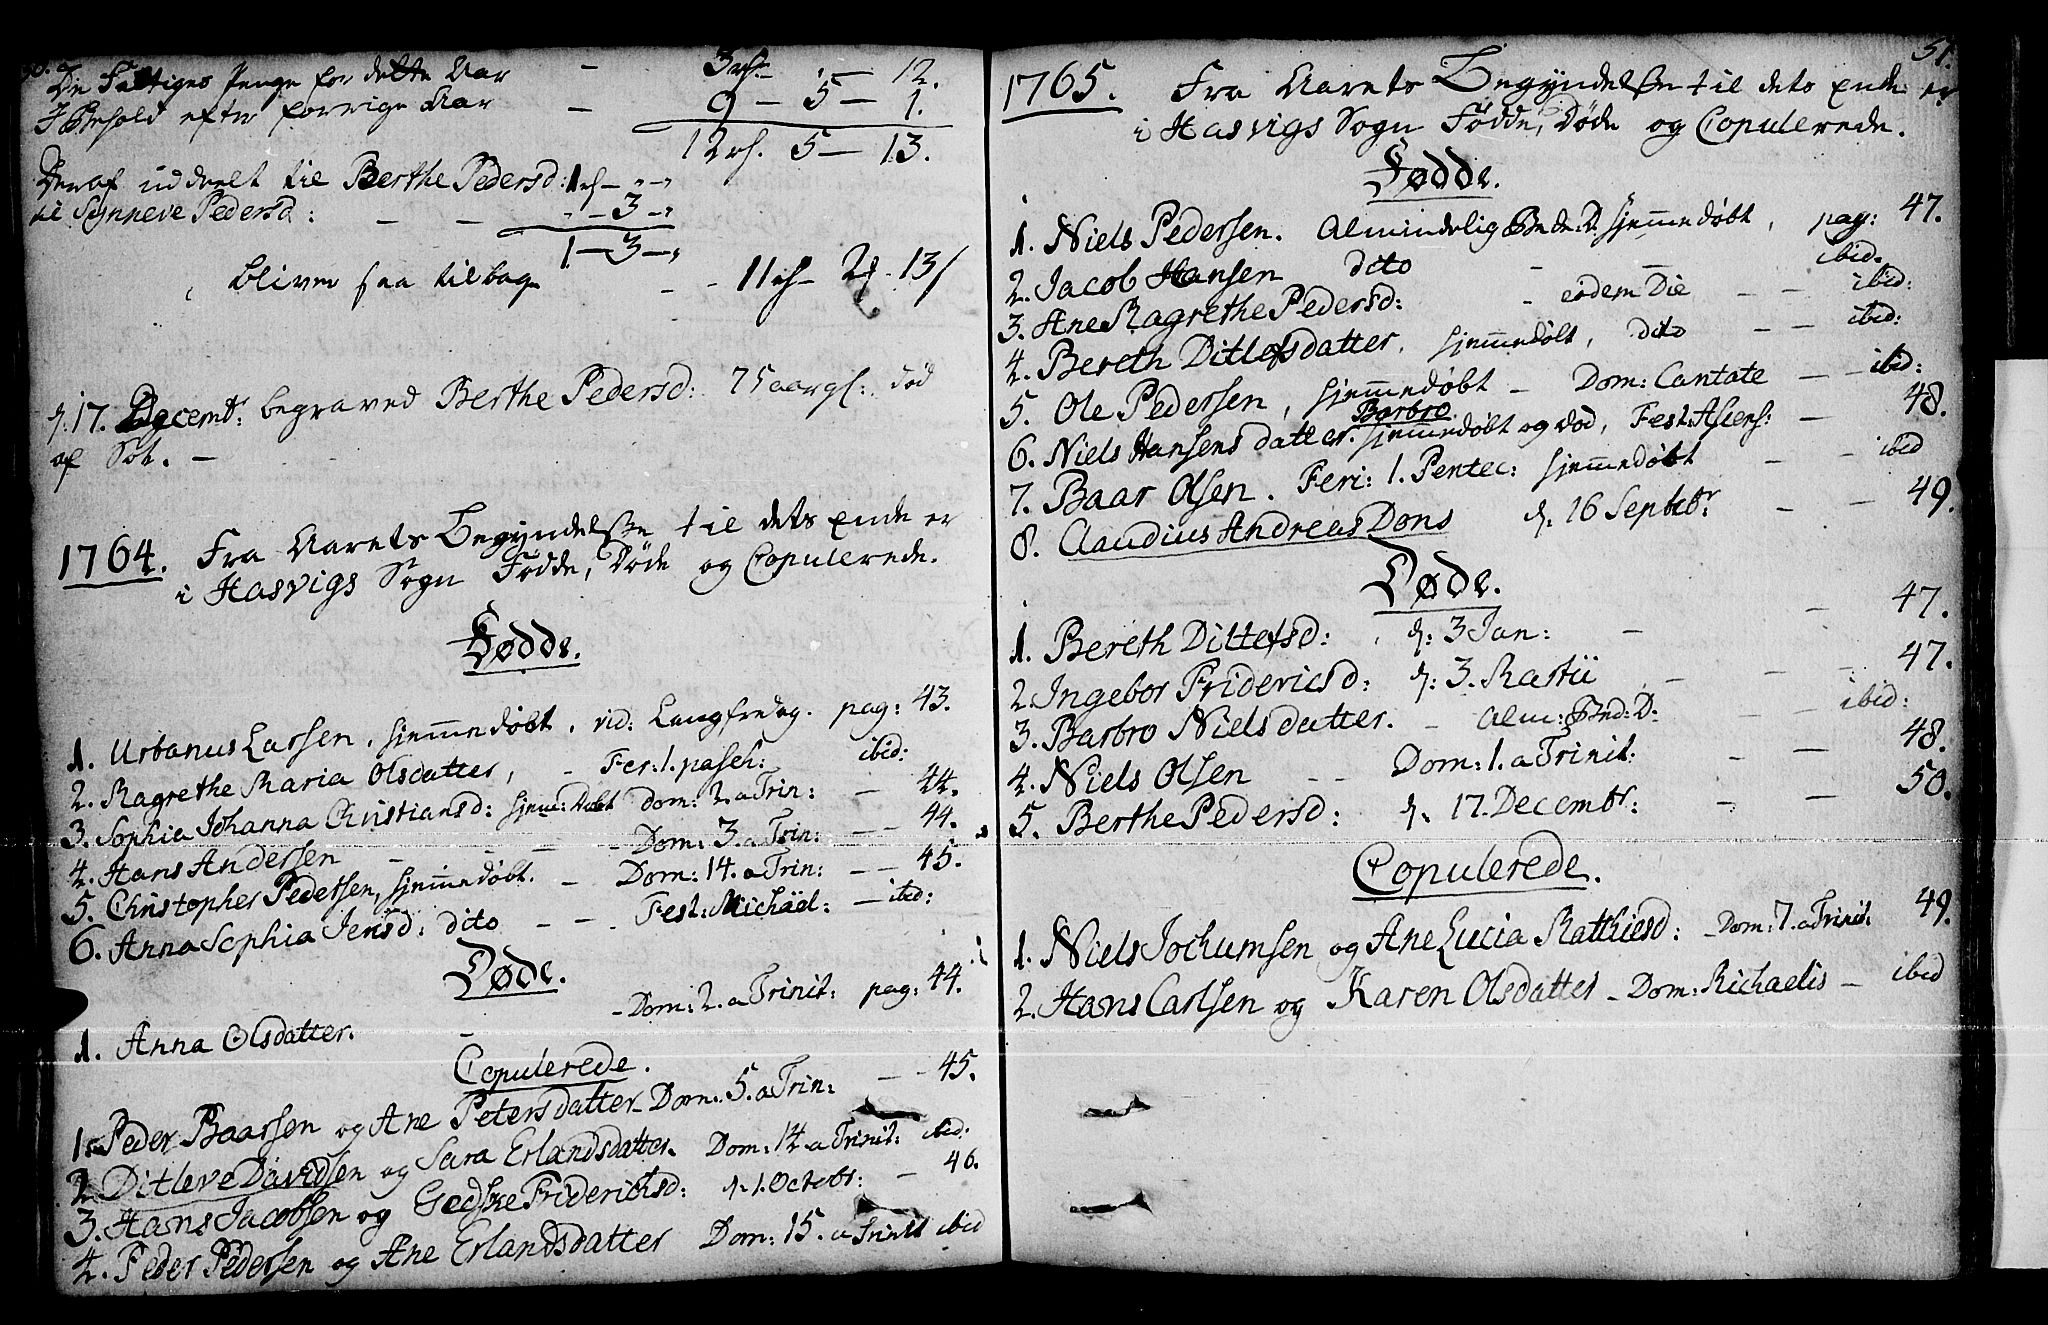 50.
De Fattiges Penge for dette Aar - 3 rh - " - 12.
I Behold efter forrige Aar - 9 - 5 - 1.
12 rh. 5 - 13.
Deraf uddeelt til Berthe Pedersd: 1 rh - " - "
til Synneve Pedersd: - - " - 3 - "
1 - 3 - "
bliver saa tilbage - - 11 rh - 2 - 13 s
d: 17. Decembr: begraved Berthe Pedersd: 75 aar gl: død
af Sot. -
1764. Fra Aarets Begyndelsse til dets Ende er
i Hasvigs Sogn Fødde, Døde og Copulerede.
Fødde.
1. Urbanus Larsen, hjemmedøbt, vid: Langfredag. pag: 43.
2. Magrethe Maria Olsdatter, - Fer: 1. pasch: ibid:
3. Sophia Johanna Christiansd: hjem: Døbt Dom: 2. a Trin: - 44.
4. Hans Andersen - - - Dom: 3. a Trin: - - 44.
5. Christopher Pedersen, hjemmedøbt. - Dom: 14. a Trin: - - 45.
6. Anna Sophia Jensd: dito - - - Fest: Michäel: - ibid:
Døde.
1. Anna Olsdatter. - - Dom: 2. a Trinit: pag: 44.
Copulerede.
1. Peder Baarsen og Ane Petersdatter - Dom: 5. a Trin: - - 45.
2. Ditleve Davidsen og Sara Erlandsdatter. Dom: 14 a Trinit: ibid:
3. Hans Jacobsen og Gedske Friderichsd: d. 1. Octobr: - 46.
4. Peder Pedersen og Ane Erlandsdatter Dom: 15. a Trinit ibid
51.
1765. Fra Aarets Begyndelsse til dets Ende er
i Hasvigs Sogn Fødde, Døde og Copulerede.
Fødde.
1. Niels Pedersen. Almindelig Bede D. hjemmedøbt, pag: 47.
2. Jacob Hansen dito - - ibid.
3. Ane Magrethe Pedersd: - eodem Die - - ibid:
4. Bereth Ditlefsdatter, hjemmedøbt, dito - - ibid:
5. Ole Pedersen, hjemmedøbt - Dom: Cantate - - ibid:
6. Niels Hansens datter Barbro. hjemmedøbt og død, Fest: Ascens: - 48.
7. Baar Olsen. Feri: 1. Pentec: hjemmedøbt - - ibid
8. Claudius Andreas Dons d. 16 Septebr - - 49.
Døde.
1. Bereth Ditlefsd: d: 3 Jan: - - 47.
2. Ingebor Fridericsd: d: 3. Martii - - - 47.
3. Barbro Nielsdatter. - Alm: Bed: D. - - ibid:
4. Niels Olsen - - Dom: 1. a Trinit: - - 48.
5. Berthe Pedersd: d. 17. Decembr: - - 50.
Copulerede.
1. Niels Jochumsen og Ane Lucia Matthiesd: - Dom: 7. a Trinit: 49.
2. Hans Carlsen og Karen Olsdatter - Dom: Michaelis - ibid